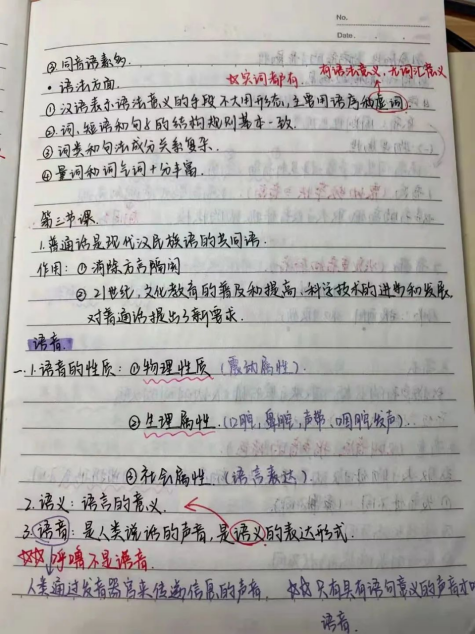 No.
Date.
③ 同音语素多.
• 语法方面.
☆☆实词都有. 有语法意义, 无词汇意义
① 汉语表示语法意义的手段不大用形态, 主要用语序和虚词.
② 词、短语和句子的结构规则基本一致.
③ 词类和句法成分关系复杂.
④ 量词和词气词十分丰富.
第三节课
1. 普通话是现代汉民族语的共同语.
作用: ① 消除方言隔阂
② 21世纪, 文化教育的普及和提高, 科学技术的进步和发展,
对普通话提出了新要求.
语音.
一. 1. 语音的性质: ① 物理性质 (震动属性).
② 生理属性. (口腔, 鼻腔, 声带, 咽腔发声).
③ 社会属性. (语言表达).
2. 语义: 语言的意义.
3. 语音: 是人类说话的声音, 是语义的表达形式.
☆☆ 呼噜不是语音.
人类通过发音器官来传递信息的声音. ☆☆只有具有语句意义的声音才叫
语音.